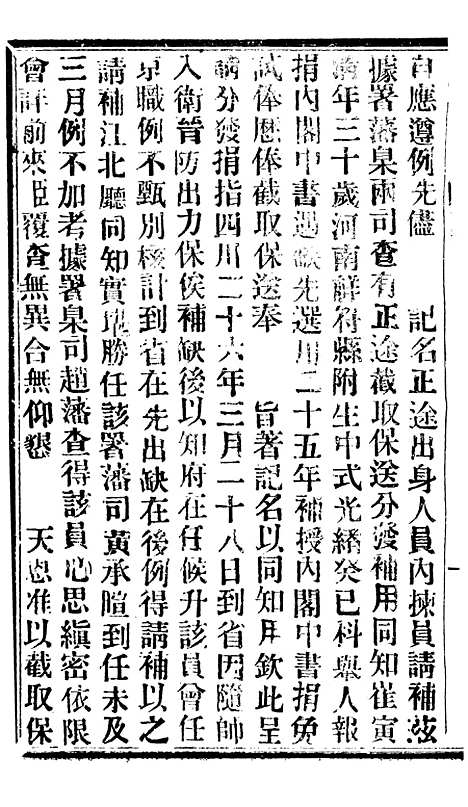 自應遵例先儘 記名正途出身人員內揀員請補茲
據署藩臬兩司查有正途截取保送分發補用同知崔寅
年三十歲河南祥符縣附生中式光緒癸巳科舉人報
捐內閣中書遇缺先選用二十五年補授內閣中書捐免
試俸歷俸截取保送奉 旨著記名以同知用欽此呈
請分發捐指四川二十六年三月二十八日到省因隨帥
入衛管防出力保俟補缺後以知府在任候升該員曾任
京職例不甄別核計到省在先出缺在後例得請補以之
請補江北廳同知實堪勝任該署藩司黃承暄到任未及
三月例不加考據署臬司趙藩查得該員心思縝密依限
會詳前來臣覆查無異合無仰懇 天恩准以截取保